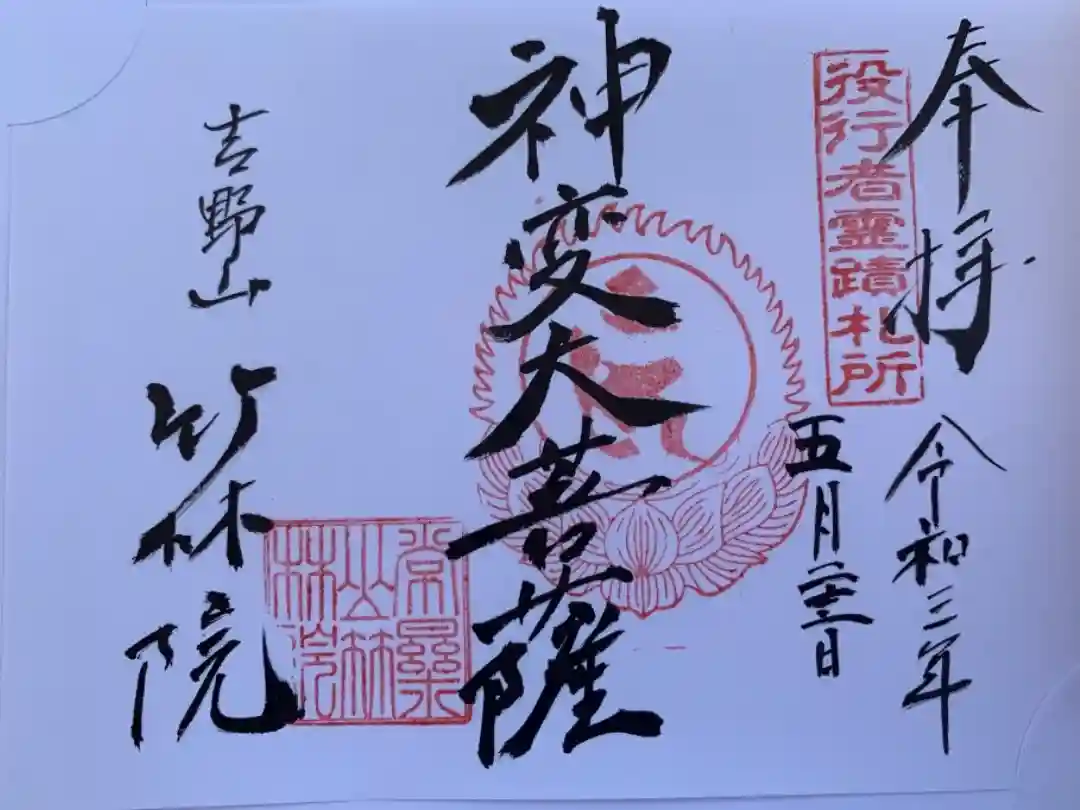 奉拝
役行者霊蹟札所
令和三年
五月二十三日
神変大菩薩
常樂山竹林院
吉野山
竹林院